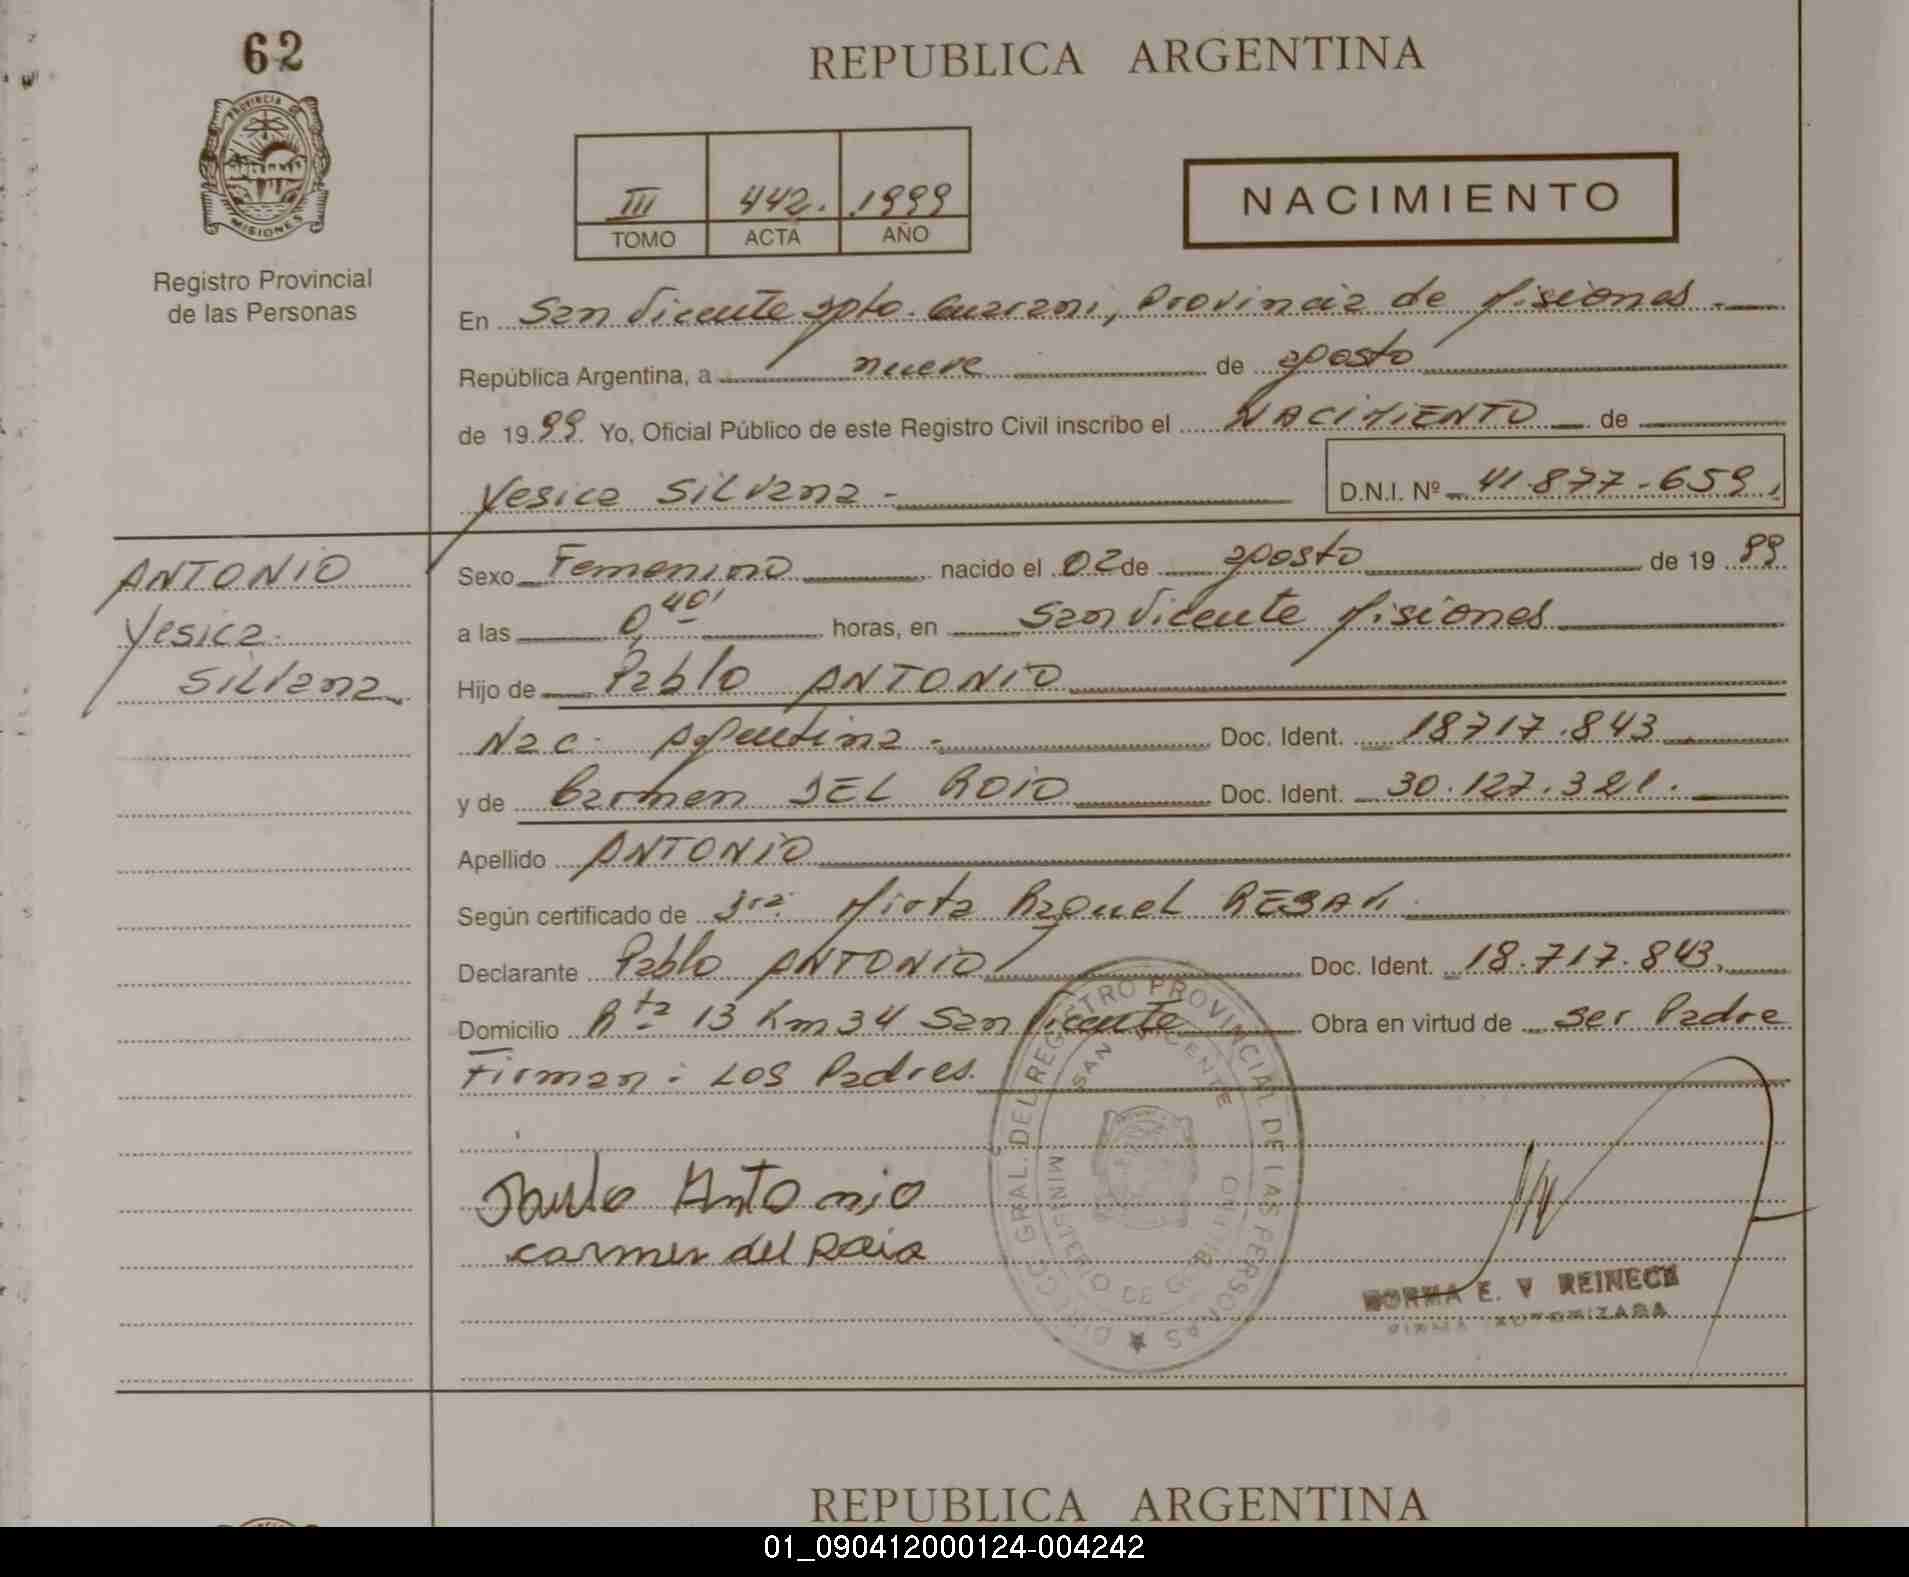 62
REPUBLICA ARGENTINA
PROVINCIA DE
MISIONES
Registro Provincial
de las Personas
III 442. 1999
TOMO ACTA AÑO
NACIMIENTO
En San Vicente Dpto. Guarani, Provincia de Misiones -
República Argentina, a nueve de agosto
de 1999 Yo, Oficial Público de este Registro Civil inscribo el NACIMIENTO de
Yesica Silvana - D.N.I. Nº 41.877.659
ANTONIO
Yesica
Silvana
Sexo Femenino nacido el 02 de agosto de 1999
a las 0,40' horas, en San Vicente Misiones
Hijo de Pablo ANTONIO
Nac. Argentina - Doc. Ident. 18717.843
y de Carmen DEL ROIO Doc. Ident. 30.127.321.
Apellido ANTONIO
Según certificado de Dra. Mirta Raquel
Declarante Pablo ANTONIO Doc. Ident. 18.717.843
Domicilio Rta 13 Km 34 San Vicente Obra en virtud de ser Padre
Firman: LOS Padres.
Antonio
carmen del Roio
DIRECC. GRAL. DEL REGISTRO PROVINCIAL DE LAS PERSONAS
SAN VICENTE
MINISTERIO DE GOBIERNO
NORMA E. V REINECK
FIRMA AUTORIZADA
REPUBLICA ARGENTINA
01_090412000124-004242